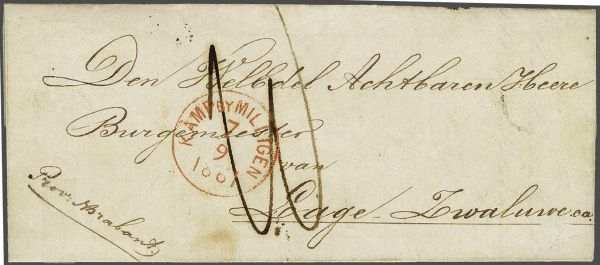 Den WelEdel Achtbaren Heere
Burgemeester
van
Lage Zwaluwe ca.
Prov: NBrabant.
KAMP BY MILLIGEN
7
9
1867